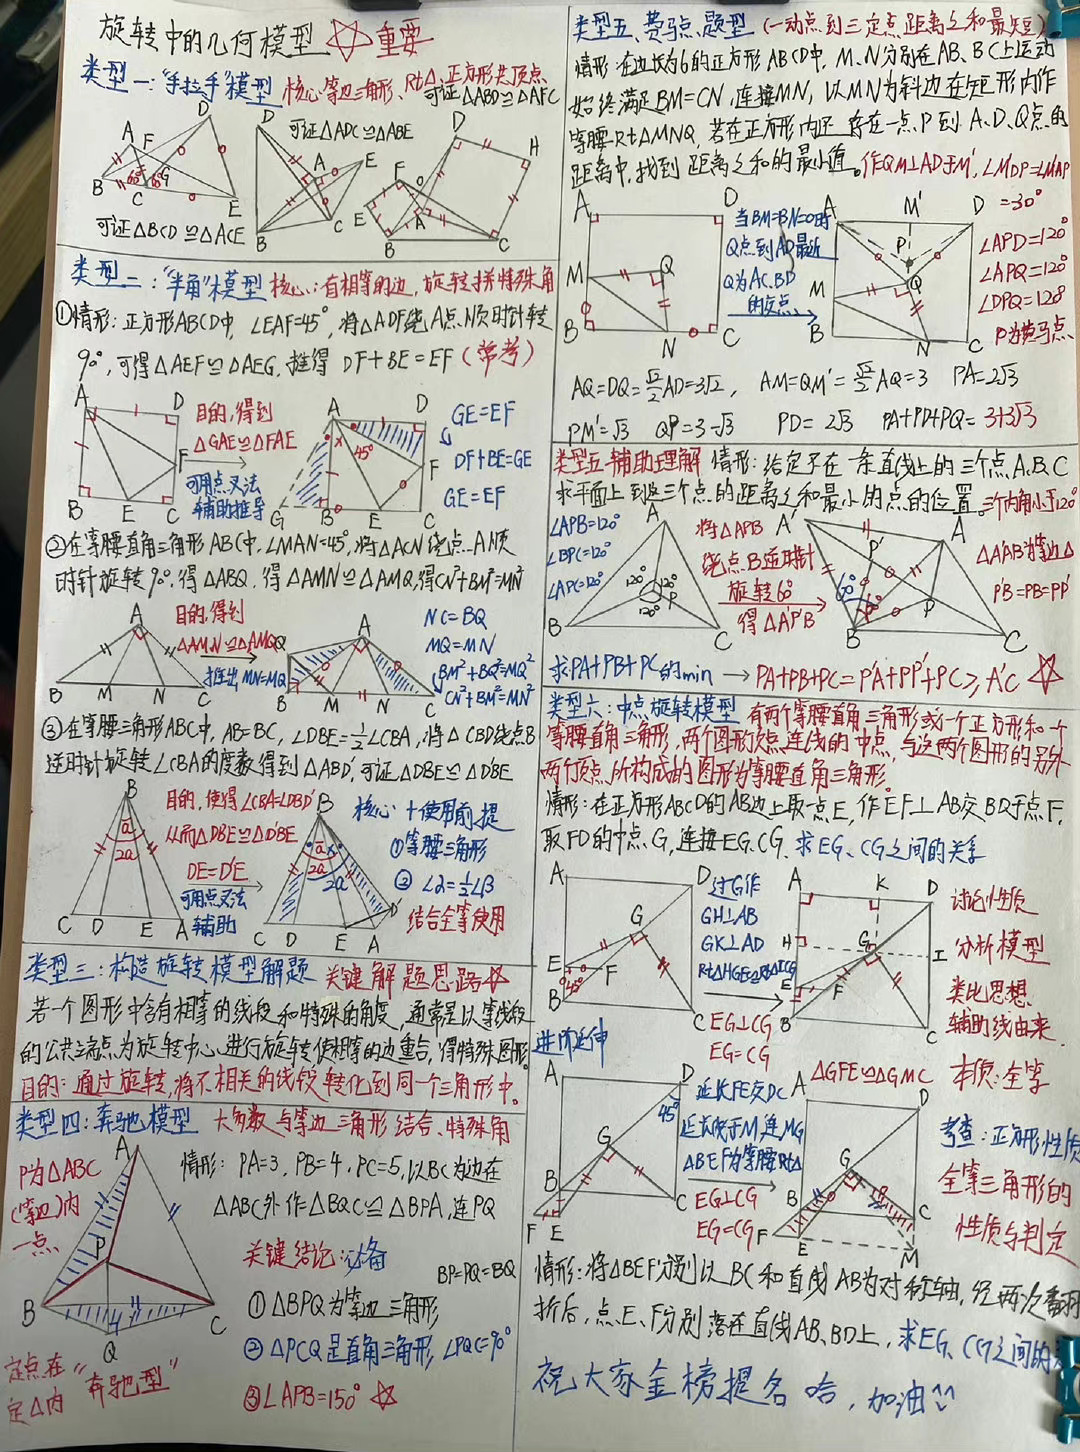 旋转中的几何模型 重要
类型一:"手拉手"模型 核心:等边三角形、Rt△、正方形共顶点
可证△ABD≌△AFC
可证△ADC≌△ABE
可证△BCD≌△ACE
类型二:"半角"模型 核心:有相等的边,旋转拼特殊角
①情形:正方形ABCD中,∠EAF=45°,将△ADF绕A点顺时针转
90°,可得△AEF≌△AEG,推得 DF+BE=EF(常考)
目的,得到
△GAE≌△FAE
可用点叉法
辅助推导
45°
GE=EF
DF+BE=GE
GE=EF
②在等腰直角三角形ABC中,∠MAN=45°,将△ACN绕点A顺
时针旋转90°,得△ABQ,得△AMN≌△AMQ,得CN²+BM²=MN²
目的,得到
△AMN≌△AMQ
推出MN=MQ
NC=BQ
MQ=MN
BM²+BQ²=MQ²
CN²+BM²=MN²
③在等腰三角形ABC中,AB=BC,∠DBE=½∠CBA,将△CBD绕点B
逆时针旋转∠CBA的度数得到△ABD',可证△DBE≌△D'BE
目的,使得∠CBA=∠DBD'
从而△DBE≌△D'BE
DE=D'E
可用点叉法
辅助
核心+使用前提
①等腰三角形
②∠α=½∠β
结合全等使用
类型三:构造旋转模型解题 关键解题思路
若一个图形中含有相等的线段和特殊的角度,通常是以等线段
的公共端点为旋转中心进行旋转使相等的边重合,得特殊图形
目的:通过旋转,将不相关的线段转化到同一个三角形中。
类型四:奔驰模型 大多数与等边三角形结合、特殊角
P为△ABC
(等边)内
一点
情形:PA=3,PB=4,PC=5,以BC为边在
△ABC外作△BQC≌△BPA,连PQ
关键结论:必备
BP=PQ=BQ
①△BPQ为等边三角形
②△PCQ是直角三角形,∠PQC=90°
③∠APB=150°
定点在"奔驰型"
定△内
类型五、费马点题型(一动点到三定点距离之和最短)
情形:在边长为6的正方形ABCD中,M、N分别在AB、BC上运动
始终满足BM=CN,连接MN,以MN为斜边在矩形内作
等腰Rt△MNQ,若在正方形内还存在一点P到A、D、Q点的
距离中,找到距离之和的最小值。作QM'⊥AD于M',∠M'DP=∠M'AP
=30°
当BM=BN=0时
Q点到AD最近
Q为AC、BD
的交点
∠APD=120°
∠APQ=120°
∠DPQ=128
P为费马点
AQ=DQ=√2/2AD=3√2, AM=QM'=√2/2AQ=3 PA=2√3
PM'=√3 QP=3-√3 PD=2√3 PA+PD+PQ=3+3√3
类型五-辅助理解 情形:给定不在一条直线上的三个点A、B、C
求平面上到这三个点的距离之和最小的点的位置。三个内角小于120°
∠APB=120°
∠BPC=120°
∠APC=120°
120° 120°
120°
将△APB
绕点B逆时针
旋转60°
得△A'P'B
60°
△A'AB为等边△
P'B=PB=PP'
求PA+PB+PC的min → PA+PB+PC=P'A'+PP'+PC≥A'C
类型六:中点旋转模型 有两个等腰直角三角形或一个正方形和一个
等腰直角三角形,两个图形顶点连线的中点,与这两个图形的另外
两个顶点所构成的图形为等腰直角三角形。
情形:在正方形ABCD的AB边上取一点E,作EF⊥AB交BD于点F,
取FD的中点G,连接EG、CG,求EG、CG之间的关系
45°
过G作
GH⊥AB
GK⊥AD
Rt△HGE≌Rt△ICG
EG⊥CG
EG=CG
讨论性质
分析模型
类比思想
辅助线由来
进阶延伸
45°
延长FE交DC
延长线于M,连MG
△BEF为等腰Rt△
EG⊥CG
EG=CG
△GFE≌△GMC 本质:全等
考查:正方形性质
全等三角形的
性质与判定
情形:将△BEF分别以BC和直线AB为对称轴,经两次翻
折后,点E、F分别落在直线AB、BD上,求EG、CG之间的
祝大家金榜提名哈,加油